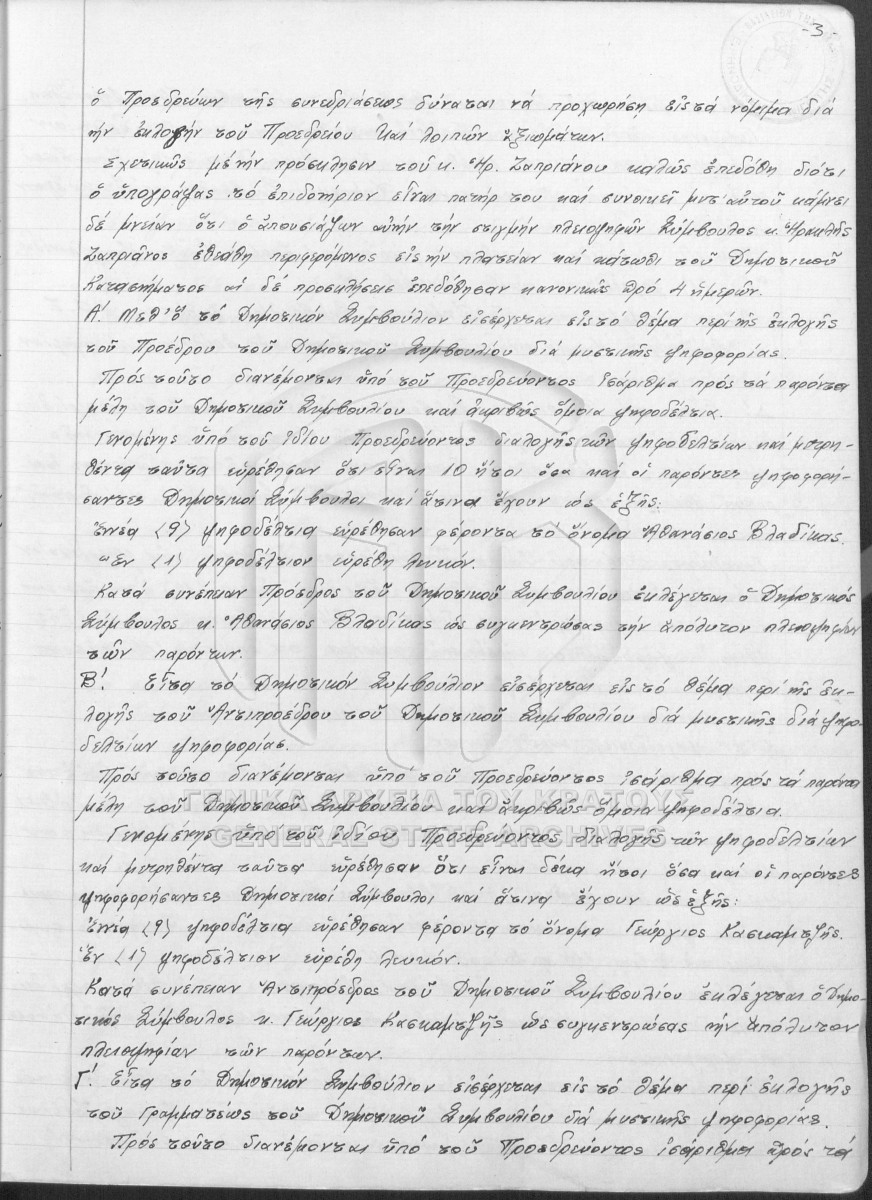 -3-
ὁ Προεδρεύων τῆς συνεδριάσεως δύναται νά προχωρήσῃ εἰς τά νόμιμα διά
τήν ἐκλογήν τοῦ Προεδρείου καί λοιπῶν ἀξιωμάτων.
Σχετικῶς μέ τήν πρόσκλησιν τοῦ κ. Ἡρ. Ζαπριάνου καλῶς ἐπεδόθη διότι
ὁ ὑπογράψας τό ἐπιδοτήριον εἶναι πατήρ του καί συνοικεῖ μετ' αὐτοῦ κάμνει
δέ μνείαν ὅτι ὁ ἀπουσιάζων αὐτήν τήν στιγμήν πλειοψηφῶν Σύμβουλος κ. Ἡρακλῆς
Ζαπριᾶνος ἐθεάθη περιφερόμενος εἰς τήν πλατεῖαν καί κάτωθι τοῦ Δημοτικοῦ
Καταστήματος αἱ δέ προσκλήσεις ἐπεδόθησαν κανονικῶς πρό 4 ἡμερῶν.
Α΄. Μεθ' ὅ τό Δημοτικόν Συμβούλιον εἰσέρχεται εἰς τό θέμα περί τῆς ἐκλογῆς
τοῦ Προέδρου τοῦ Δημοτικοῦ Συμβουλίου διά μυστικῆς ψηφοφορίας.
Πρός τοῦτο διανέμονται ὑπό τοῦ Προεδρεύοντος ἰσάριθμα πρός τά παρόντα
μέλη τοῦ Δημοτικοῦ Συμβουλίου καί ἀκριβῶς ὅμοια ψηφοδέλτια.
Γενομένης ὑπό τοῦ ἰδίου Προεδρεύοντος διαλογῆς τῶν ψηφοδελτίων καί μετρη-
θέντα ταῦτα εὑρέθησαν ὅτι εἶναι 10 ἤτοι ὅσα καί οἱ παρόντες ψηφοφορή-
σαντες Δημοτικοί Σύμβουλοι καί ἅτινα ἔχουν ὡς ἑξῆς:
Ἐννέα (9) ψηφοδέλτια εὑρέθησαν φέροντα τό ὄνομα Ἀθανάσιος Βλαδίκας.
Ἕν (1) ψηφοδέλτιον εὑρέθη λευκόν.
Κατά συνέπειαν Πρόεδρος τοῦ Δημοτικοῦ Συμβουλίου ἐκλέγεται ὁ Δημοτικός
Σύμβουλος κ. Ἀθανάσιος Βλαδίκας ὡς συγκεντρώσας τήν ἀπόλυτον πλειοψηφίαν
τῶν παρόντων.
Β΄. Εἶτα τό Δημοτικόν Συμβούλιον εἰσέρχεται εἰς τό θέμα περί τῆς ἐκ-
λογῆς τοῦ Ἀντιπροέδρου τοῦ Δημοτικοῦ Συμβουλίου διά μυστικῆς διά ψηφο-
δελτίων ψηφοφορίας.
Πρός τοῦτο διανέμονται ὑπό τοῦ Προεδρεύοντος ἰσάριθμα πρός τά παρόντα
μέλη τοῦ Δημοτικοῦ Συμβουλίου καί ἀκριβῶς ὅμοια ψηφοδέλτια.
ΓΕΝΙΚΑ ΑΡΧΕΙΑ ΤΟΥ ΚΡΑΤΟΥΣ
GENERAL STATE ARCHIVES
Γενομένης ὑπό τοῦ ἰδίου Προεδρεύοντος διαλογῆς τῶν ψηφοδελτίων
καί μετρηθέντα ταῦτα εὑρέθησαν ὅτι εἶναι δέκα ἤτοι ὅσα καί οἱ παρόντες
ψηφοφορήσαντες Δημοτικοί Σύμβουλοι καί ἅτινα ἔχουν ὡς ἑξῆς:
Ἐννέα (9) ψηφοδέλτια εὑρέθησαν φέροντα τό ὄνομα Γεώργιος Κασκαμτζῆς.
Ἕν (1) ψηφοδέλτιον εὑρέθη λευκόν.
Κατά συνέπειαν Ἀντιπρόεδρος τοῦ Δημοτικοῦ Συμβουλίου ἐκλέγεται ὁ Δημο-
τικός Σύμβουλος κ. Γεώργιος Κασκαμτζῆς ὡς συγκεντρώσας τήν ἀπόλυτον
πλειοψηφίαν τῶν παρόντων.
Γ΄. Εἶτα τό Δημοτικόν Συμβούλιον εἰσέρχεται εἰς τό θέμα περί ἐκλογῆς
τοῦ Γραμματέως τοῦ Δημοτικοῦ Συμβουλίου διά μυστικῆς ψηφοφορίας.
Πρός τοῦτο διανέμονται ὑπό τοῦ Προεδρεύοντος ἰσάριθμα πρός τά